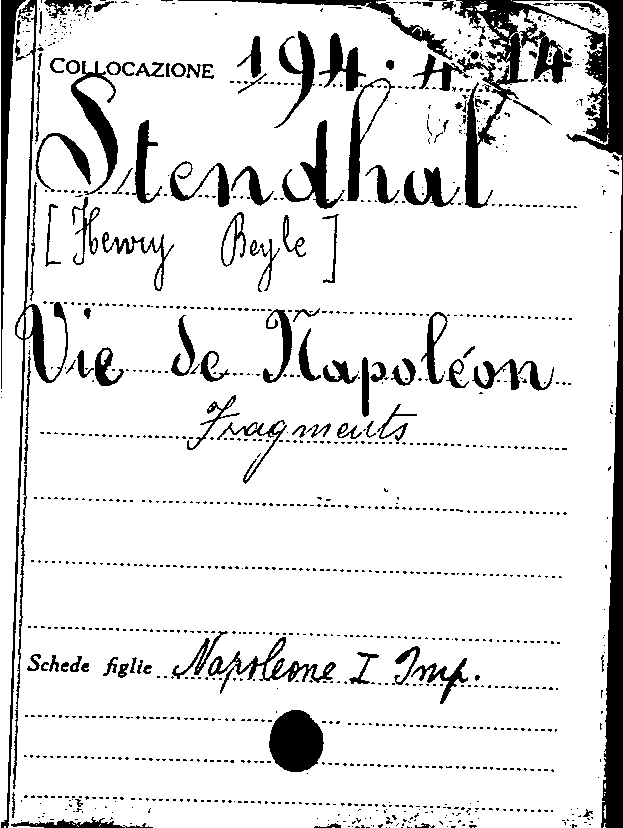 COLLOCAZIONE 194.4 14
Stendhal
[Henry Beyle]
Vie de Napoléon
Fragments
Schede figlie Napoleone I Imp.